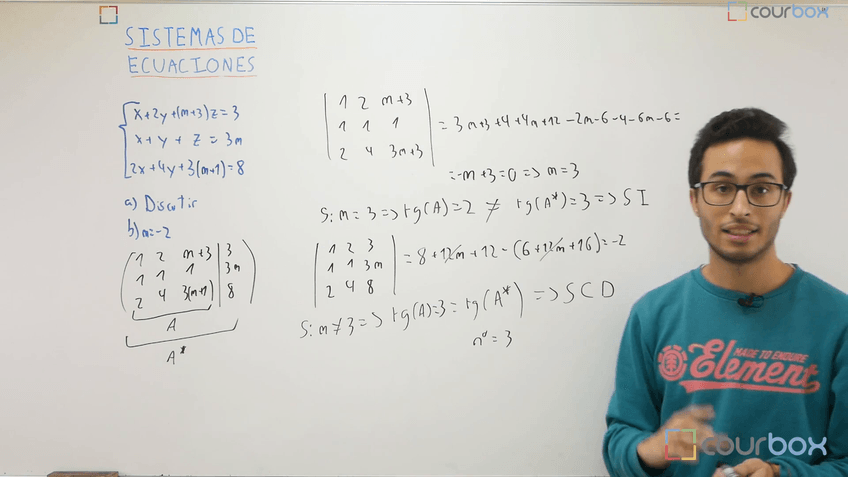 courbox
SISTEMAS DE
ECUACIONES
x+2y+(m+3)z=3
x+y+z=3m
2x+4y+3(m+1)=8
a) Discutir
b) m=-2
1 2 m+3 | 3
1 1 1 | 3m
2 4 3(m+1) | 8
A
A*
| 1 2 m+3 |
| 1 1 1 | = 3m+3+4+4m+12-2m-6-4-6m-6=
| 2 4 3m+3 |
=-m+3=0=>m=3
S: m=3=>rg(A)=2 ≠ rg(A*)=3=>SI
| 1 2 3 |
| 1 1 3m | = 8+12m+12-(6+12m+16)=-2
| 2 4 8 |
S: m≠3=>rg(A)=3=rg(A*) => SCD
nº=3
MADE TO ENDURE
Element
courbox